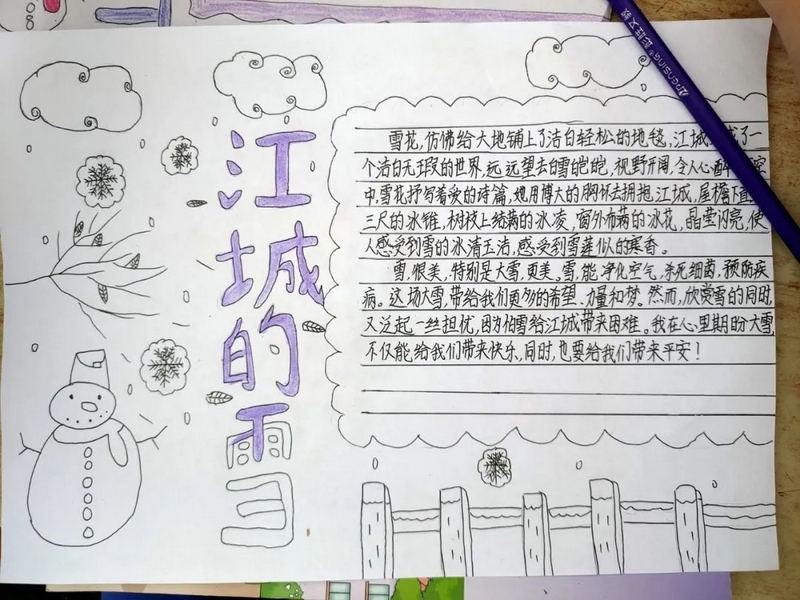 江城的雪
雪花,仿佛给大地铺上了洁白轻松的地毯,江城成了一
个洁白无瑕的世界,远远望去白雪皑皑,视野开阔,令人心醉空
中,雪花抒写着爱的诗篇,她用博大的胸怀去拥抱江城,屋檐下直
三尺的冰锥,树枝上结满的冰凌,窗外布满的冰花,晶莹闪亮,使
人感受到雪的冰清玉洁,感受到雪莲似的寒香。
雪,很美,特别是大雪,更美。雪,能净化空气,杀死细菌,预防疾
病。这场大雪,带给我们更多的希望、力量和梦。然而,欣赏雪的同时,
又泛起一丝担忧,因为怕雪给江城带来困难。我在心里期盼大雪,
不仅能给我们带来快乐,同时,也要给我们带来平安!